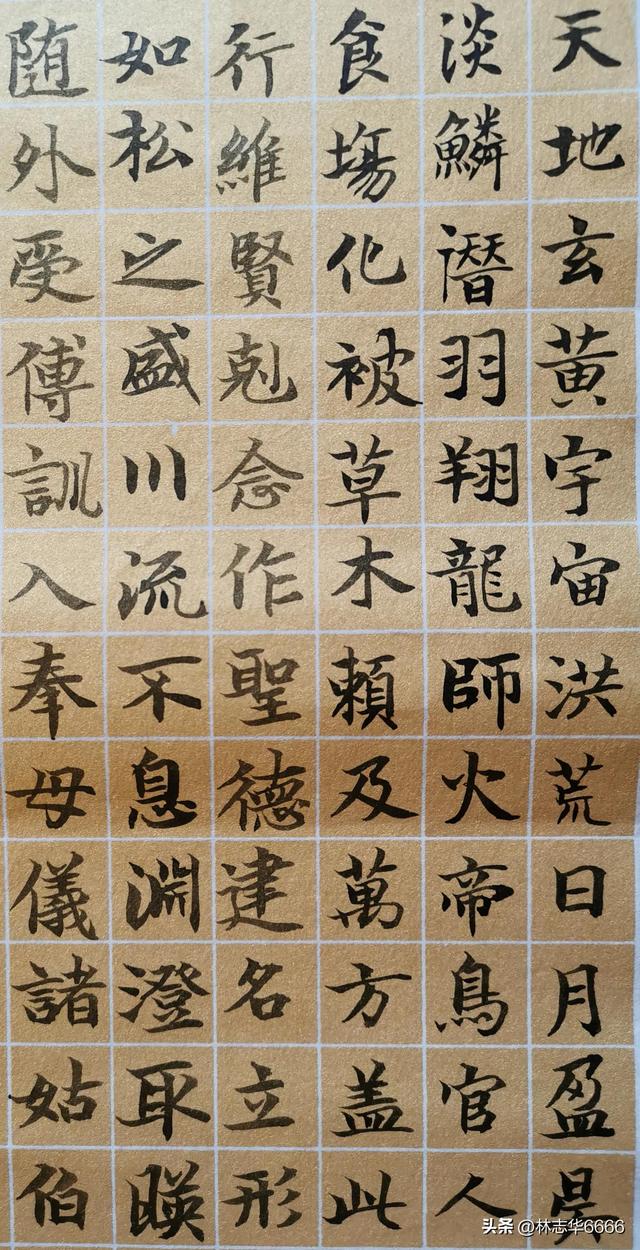 天地玄黃宇宙洪荒日月盈昃
淡鱗潛羽翔龍師火帝鳥官人
食場化被草木賴及萬方盖此
行維賢剋念作聖德建名立形
如松之盛川流不息淵澄取暎
随外受傅訓入奉母儀諸姑伯
头条 @林志华6666